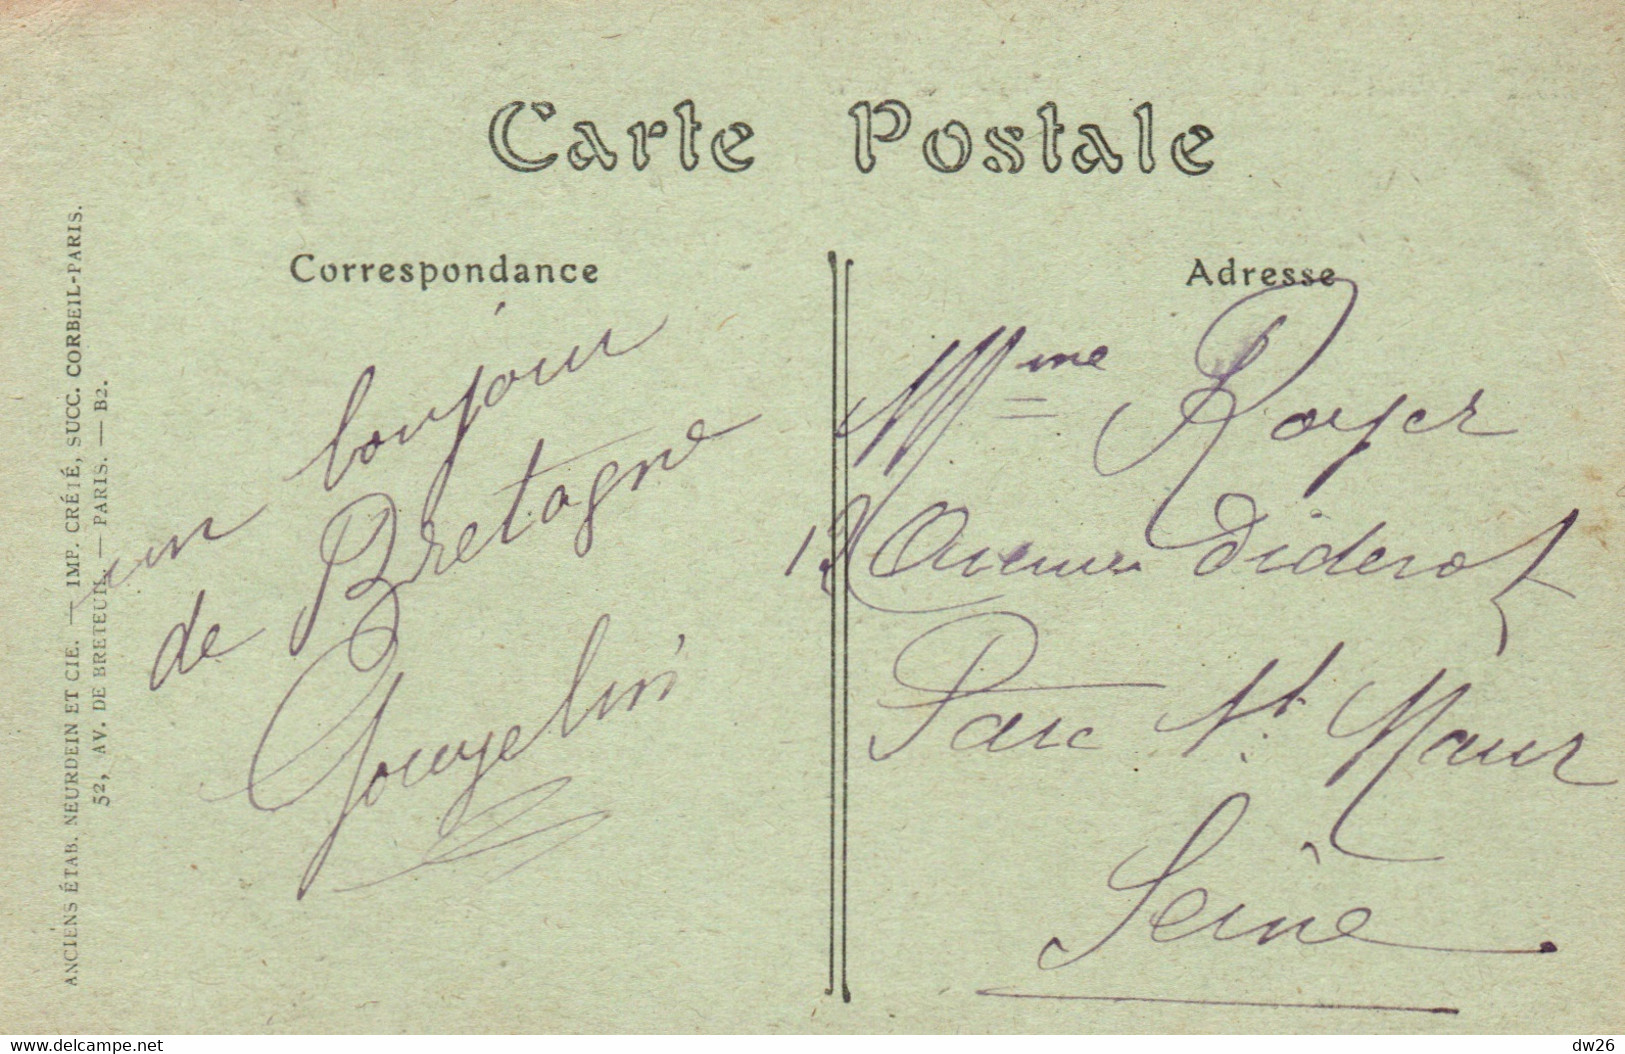 Carte Postale
Correspondance
un bonjour
de Bretagne
Gouyelin
Adresse
Mme Royer
13 Avenue Diderot
Parc St. Maur
Seine
ANCIENS ÉTAB. NEURDEIN ET CIE. — IMP. CRÉTÉ, SUCC. CORBEIL-PARIS.
52, AV. DE BRETEUIL. — PARIS. — B2.
www.delcampe.net
dw26